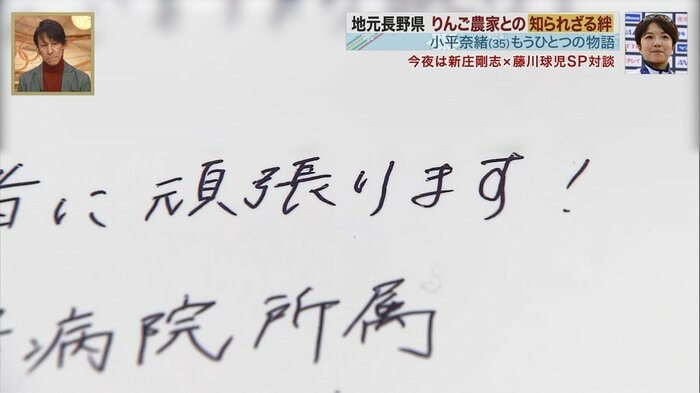 地元長野県 りんご農家との 知られざる絆
小平奈緒(35)もうひとつの物語
今夜は新庄剛志×藤川球児SP対談
首に 頑張ります！
病院所属